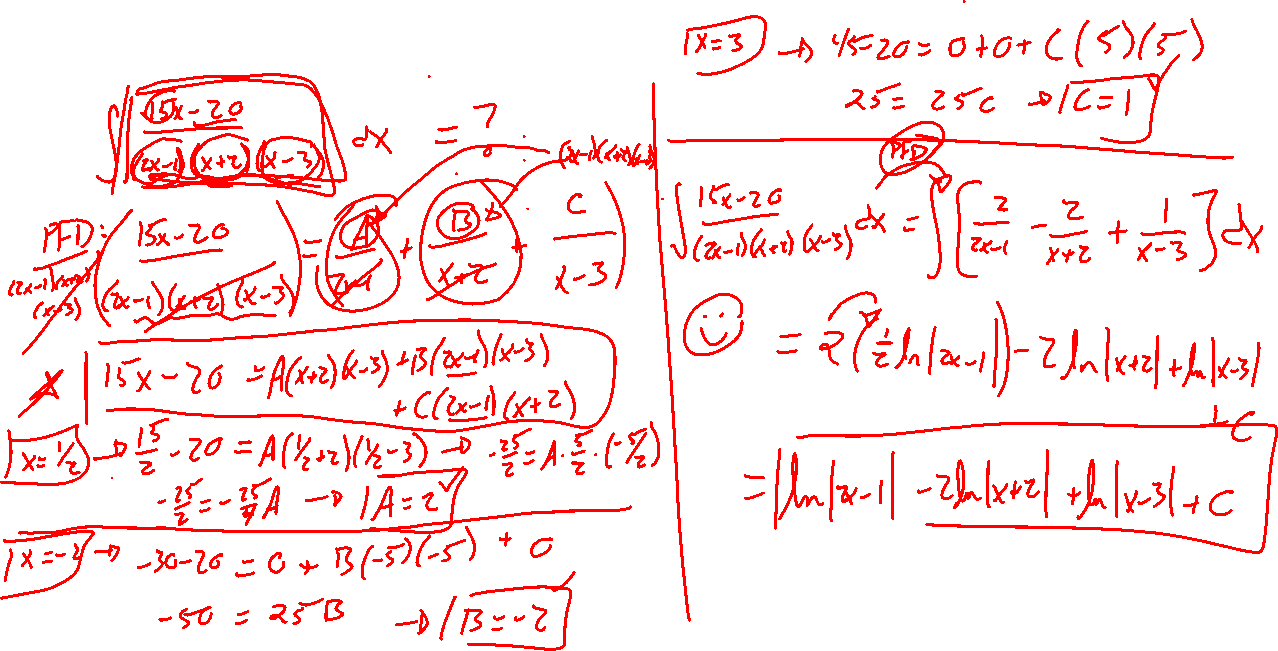 ∫ (15x-20)/((2x-1)(x+2)(x-3)) dx = ?
PFD: ((15x-20)/((2x-1)(x+2)(x-3)) = A/(2x-1) + B/(x+2) + C/(x-3))
(2x-1)(x+2)(x-3)
(2x-1)(x+2)(x-3)
15x-20 = A(x+2)(x-3) + B(2x-1)(x-3)
+ C(2x-1)(x+2)
x=1/2 → 15/2 - 20 = A(1/2+2)(1/2-3) → -25/2 = A·5/2·(-5/2)
-25/2 = -25/4 A → A=2
x=-2 → -30-20 = 0 + B(-5)(-5) + 0
-50 = 25B → B=-2
x=3 → 45-20 = 0+0+C(5)(5)
25 = 25C → C=1
PFD
∫ (15x-20)/((2x-1)(x+2)(x-3)) dx = ∫ [2/(2x-1) - 2/(x+2) + 1/(x-3)] dx
= 2(1/2 ln|2x-1|) - 2ln|x+2| + ln|x-3|
+C
= ln|2x-1| - 2ln|x+2| + ln|x-3| + C